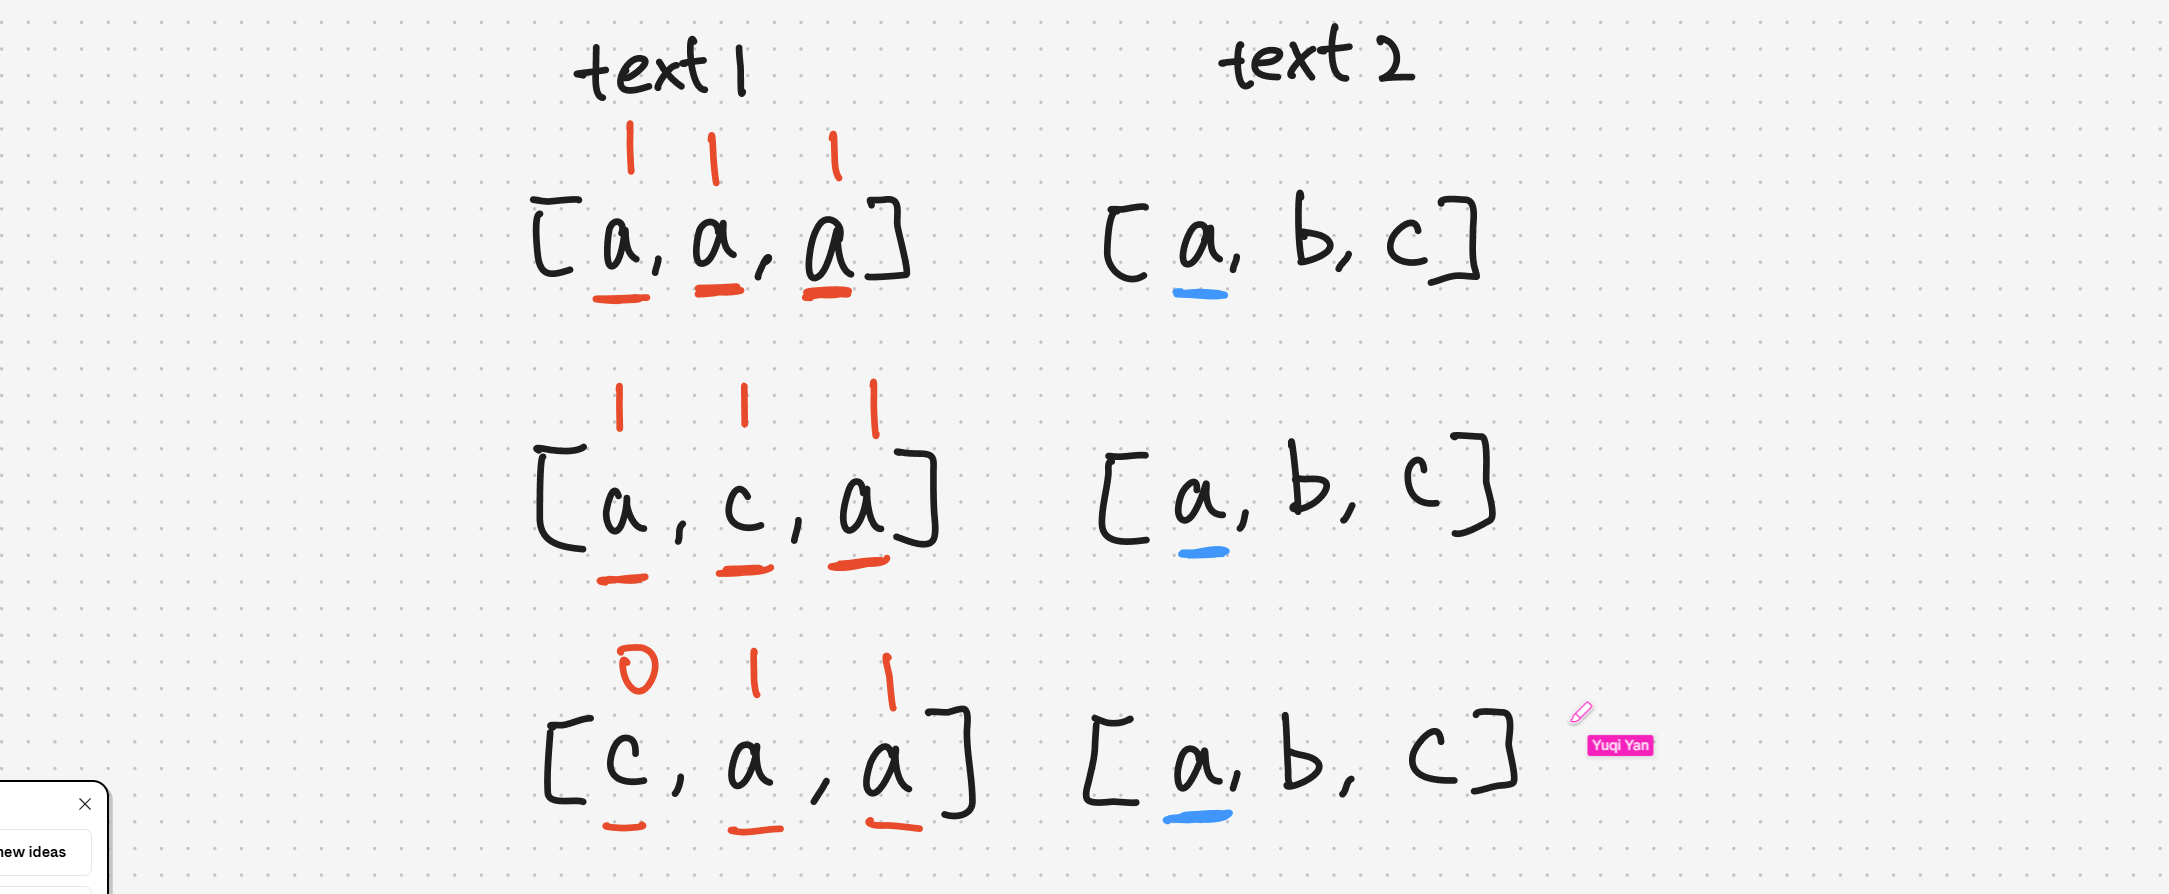 text 1 text 2
1 1 1
[a, a, a] [a, b, c]
1 1 1
[a, c, a] [a, b, c]
0 1 1
[c, a, a] [a, b, c]
Yuqi Yan
new ideas